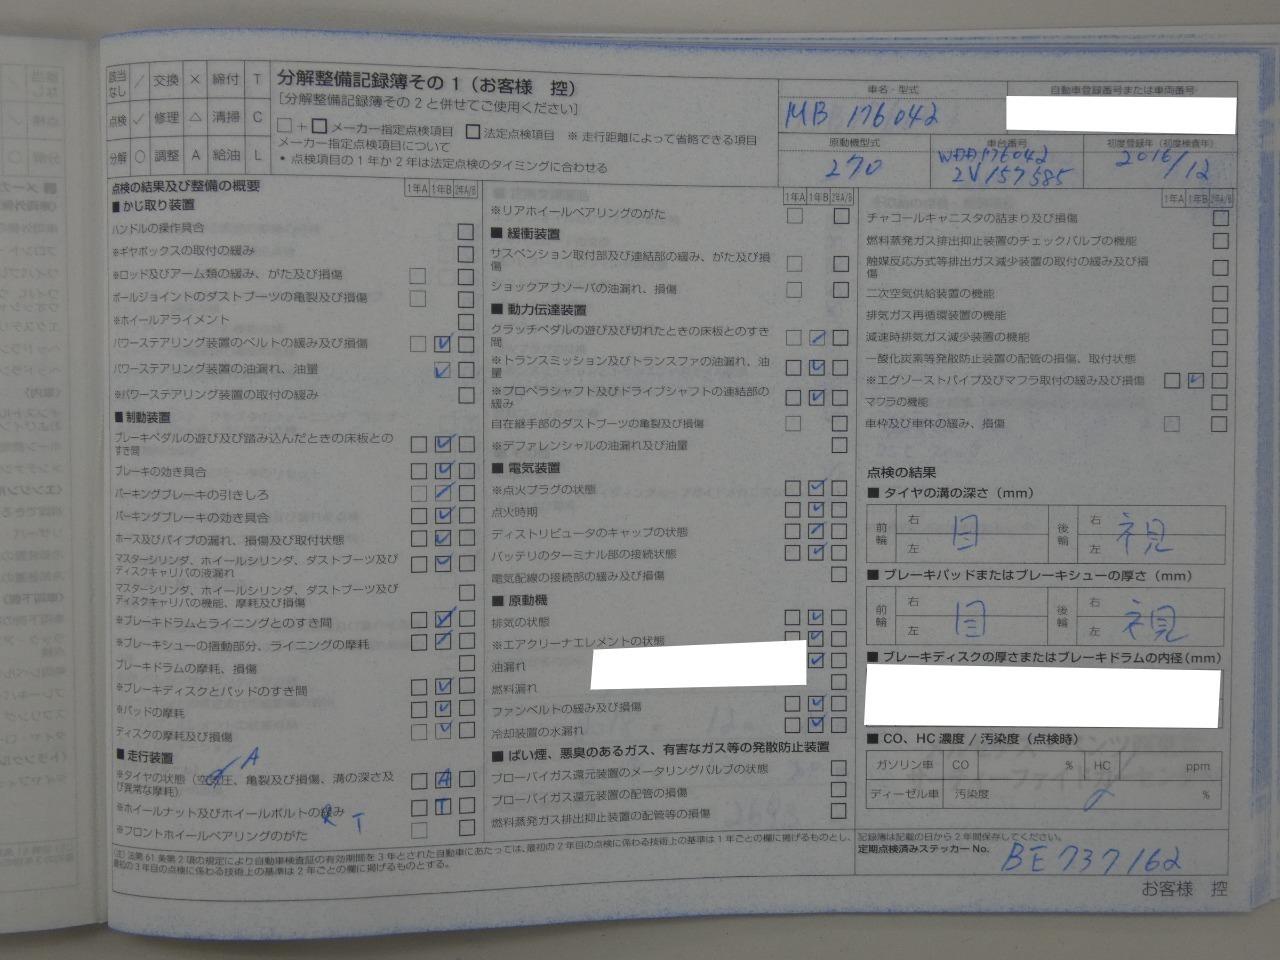 該当なし ／ 交換 × 締付 T
点検 ✓ 修理 △ 清掃 C
分解 ○ 調整 A 給油 L
分解整備記録簿その1（お客様 控）
［分解整備記録簿その2と併せてご使用ください］
□＋□ メーカー指定点検項目 □ 法定点検項目 ※ 走行距離によって省略できる項目
メーカー指定点検項目について
• 点検項目の1年か2年は法定点検のタイミングに合わせる
車名・型式
MB 176042
自動車登録番号または車両番号
原動機型式
270
車台番号
WDD176042
2V157585
初度登録年（初度検査年）
2016/12
点検の結果及び整備の概要
1年A 1年B 2年A/B
■ かじ取り装置
ハンドルの操作具合
※ギヤボックスの取付の緩み
※ロッド及びアーム類の緩み、がた及び損傷
ボールジョイントのダストブーツの亀裂及び損傷
※ホイールアライメント
パワーステアリング装置のベルトの緩み及び損傷 ✓
パワーステアリング装置の油漏れ、油量 ✓
※パワーステアリング装置の取付の緩み
■ 制動装置
ブレーキペダルの遊び及び踏み込んだときの床板との
すき間 ✓
ブレーキの効き具合 ✓
パーキングブレーキの引きしろ ／
パーキングブレーキの効き具合 ✓
ホース及びパイプの漏れ、損傷及び取付状態 ✓
マスターシリンダ、ホイールシリンダ、ダストブーツ及び
ディスクキャリパの液漏れ ✓
マスターシリンダ、ホイールシリンダ、ダストブーツ及び
ディスクキャリパの機能、摩耗及び損傷
※ブレーキドラムとライニングとのすき間
※ブレーキシューの摺動部分、ライニングの摩耗 ／
ブレーキドラムの摩耗、損傷
※ブレーキディスクとパッドのすき間 ✓
※パッドの摩耗 ✓
ディスクの摩耗及び損傷 ✓
■ 走行装置
A
※タイヤの状態（空気圧、亀裂及び損傷、溝の深さ及
び異常な摩耗） A
※ホイールナット及びホイールボルトの緩み T
T
※フロントホイールベアリングのがた
1年A 1年B 2年A/B
※リアホイールベアリングのがた
■ 緩衝装置
サスペンション取付部及び連結部の緩み、がた及び損
傷
ショックアブソーバの油漏れ、損傷
■ 動力伝達装置
クラッチペダルの遊び及び切れたときの床板とのすき
間 ／
※トランスミッション及びトランスファの油漏れ、油
量 ✓
※プロペラシャフト及びドライブシャフトの連結部の
緩み ✓
自在継手部のダストブーツの亀裂及び損傷
※デファレンシャルの油漏れ及び油量
■ 電気装置
※点火プラグの状態 ✓
点火時期 ✓
ディストリビュータのキャップの状態 ／
バッテリのターミナル部の接続状態 ✓
電気配線の接続部の緩み及び損傷
■ 原動機
排気の状態 ✓
※エアクリーナエレメントの状態 ✓
油漏れ ✓
燃料漏れ
ファンベルトの緩み及び損傷 ✓
冷却装置の水漏れ ✓
■ ばい煙、悪臭のあるガス、有害なガス等の発散防止装置
ブローバイガス還元装置のメータリングバルブの状態
ブローバイガス還元装置の配管の損傷
燃料蒸発ガス排出抑止装置の配管等の損傷
1年A 1年B 2年A/B
チャコールキャニスタの詰まり及び損傷
燃料蒸発ガス排出抑止装置のチェックバルブの機能
触媒反応方式等排出ガス減少装置の取付の緩み及び損
傷
二次空気供給装置の機能
排気ガス再循環装置の機能
減速時排気ガス減少装置の機能
一酸化炭素等発散防止装置の配管の損傷、取付状態
※エグゾーストパイプ及びマフラ取付の緩み及び損傷 ✓
マフラの機能
車枠及び車体の緩み、損傷
点検の結果
■ タイヤの溝の深さ（mm）
前輪 右 左 目 後輪 右 左 視
■ ブレーキパッドまたはブレーキシューの厚さ（mm）
前輪 右 左 目 後輪 右 左 視
■ ブレーキディスクの厚さまたはブレーキドラムの内径（mm）
■ CO、HC 濃度 / 汚染度（点検時）
ガソリン車 CO % HC ppm
ディーゼル車 汚染度 %
(注) 法第 61 条第 2 項の規定により自動車検査証の有効期間を 3 年とされた自動車にあたっては、最初の 2 年目の点検に係わる技術上の基準は 1 年ごとの欄に掲げるものとし、
最初の 3 年目の点検に係わる技術上の基準は 2 年ごとの欄に掲げるものとする。
記録簿は記載の日から 2 年間保存してください。
定期点検済みステッカー No.
BE737162
お客様 控